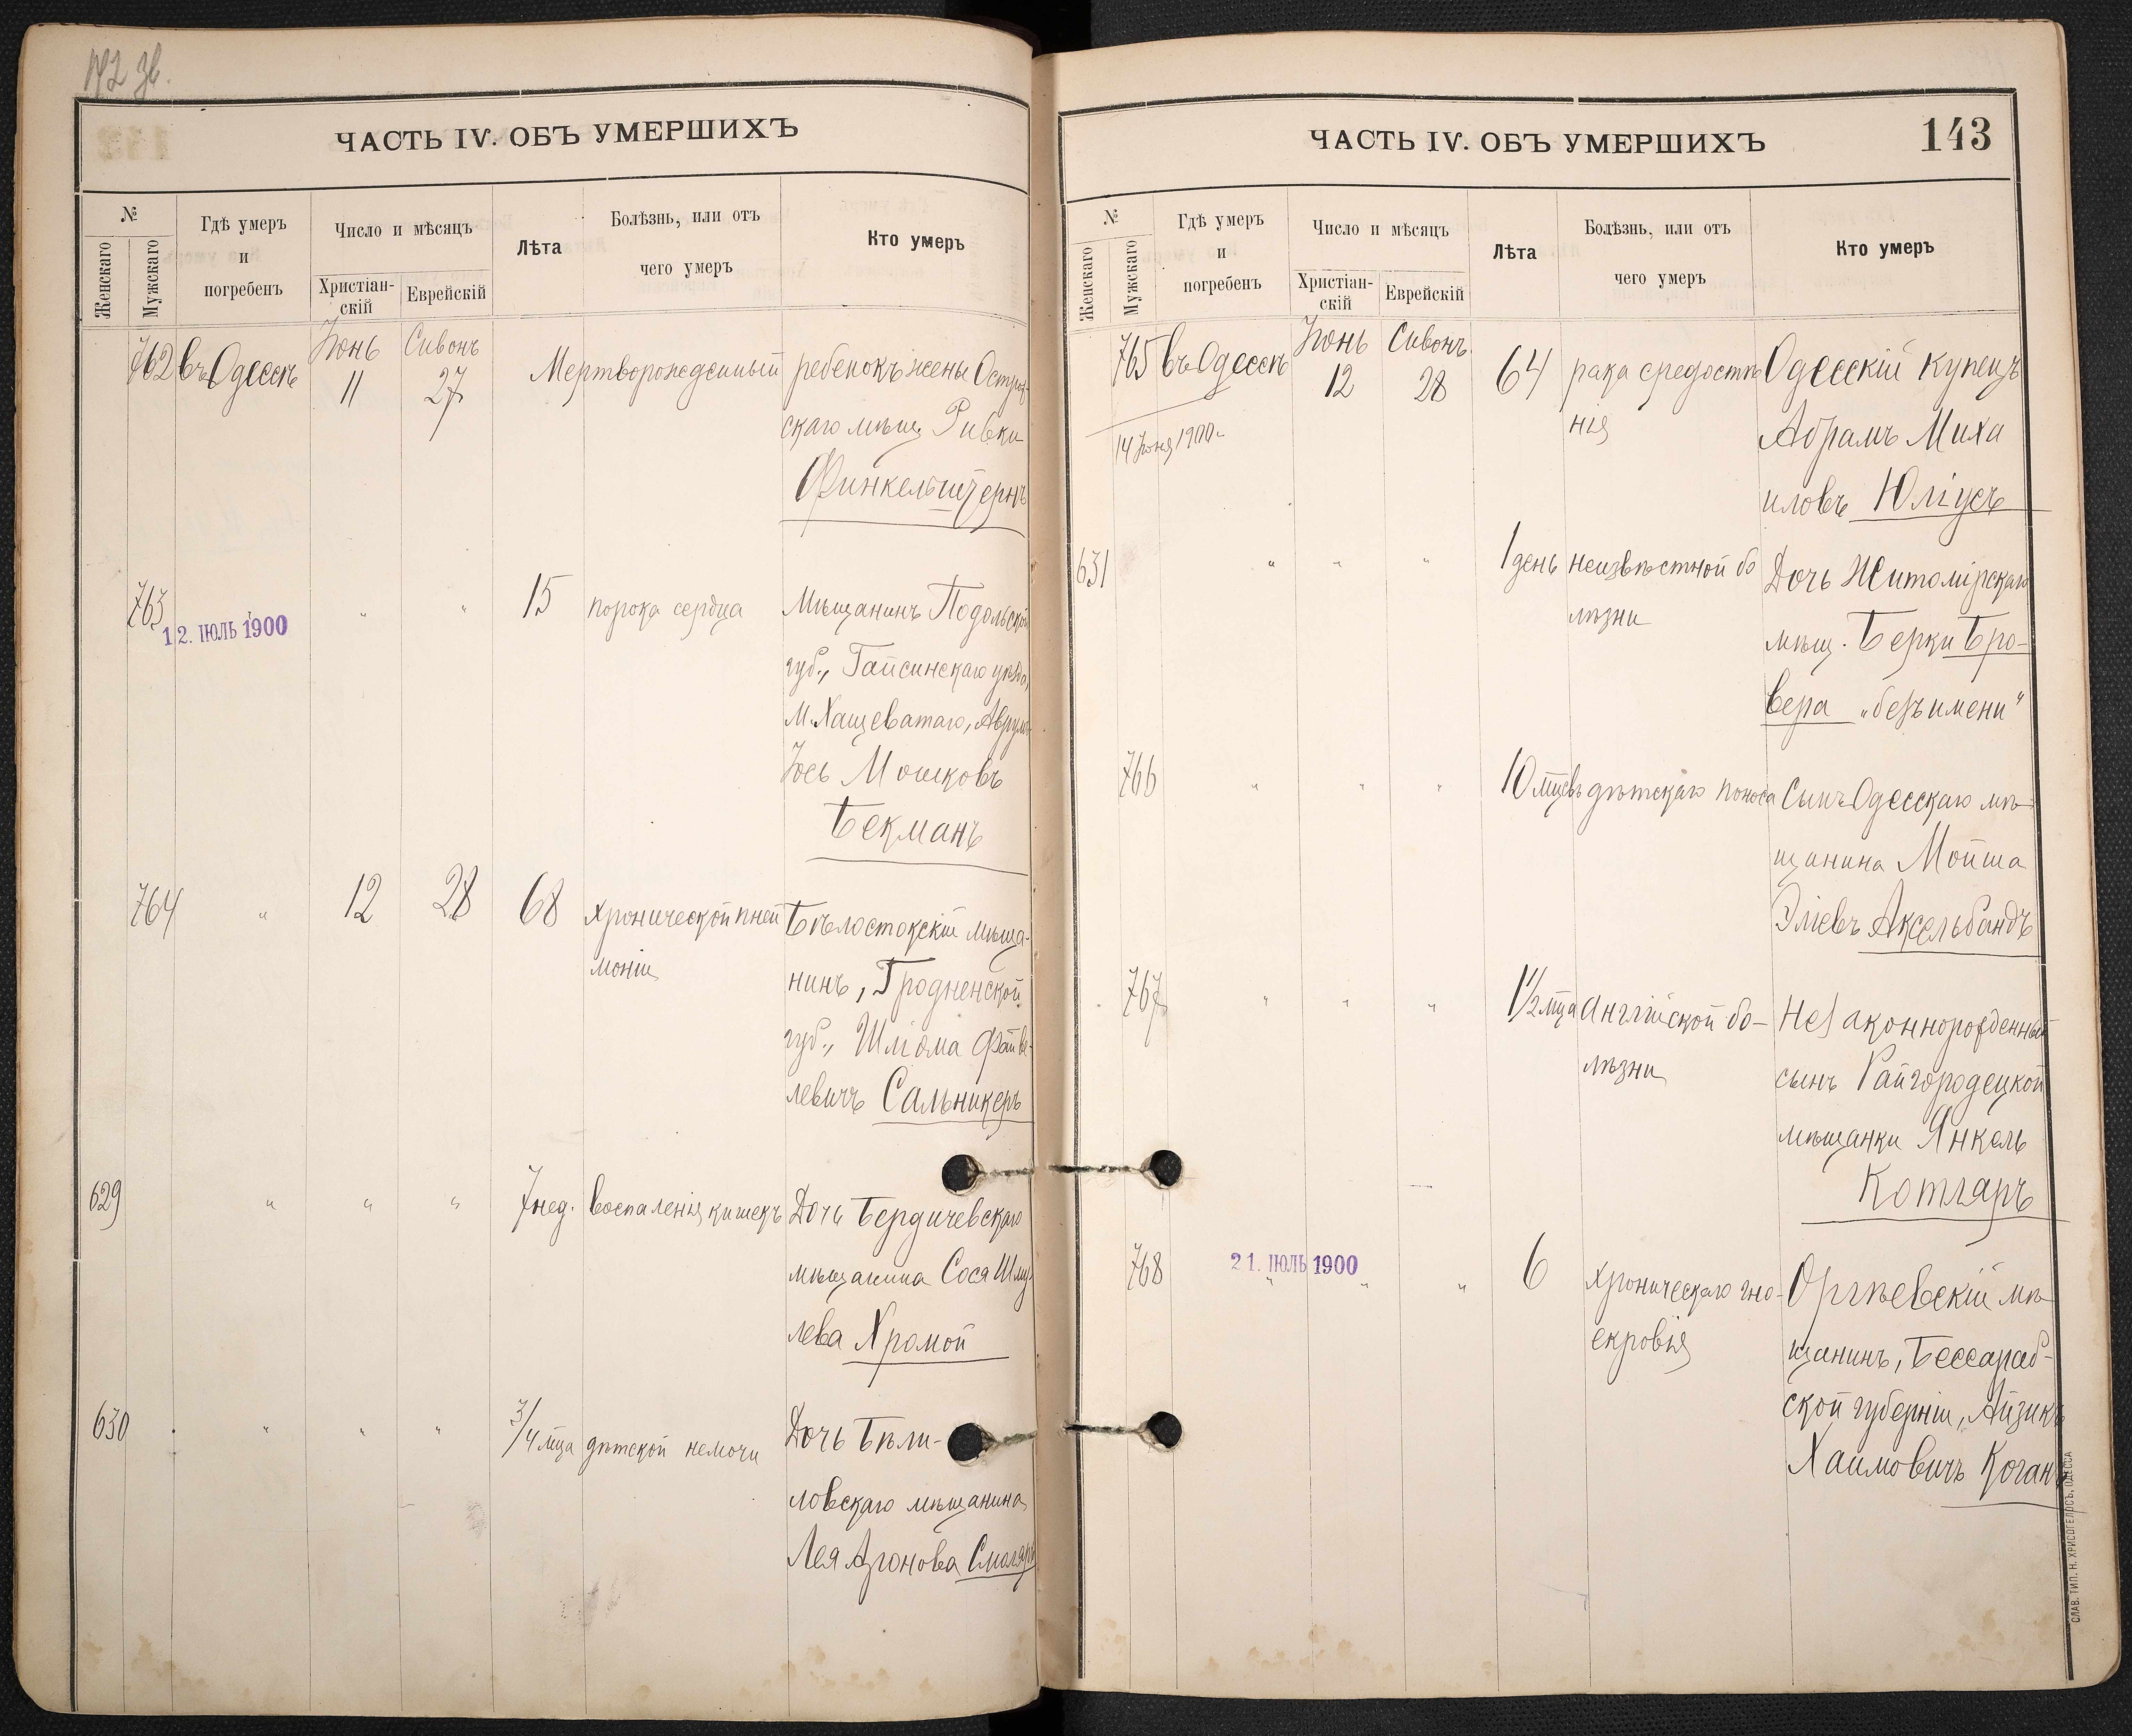 142 зв.
ЧАСТЬ IV. ОБЪ УМЕРШИХЪ
№
Женскаго
Мужскаго
Гдѣ умеръ
и
погребенъ
Число и мѣсяцъ
Христіан-
скій
Еврейскій
Лѣта
Болѣзнь, или отъ
чего умеръ
Кто умеръ
762 въ Одессѣ Іюнь 11 Сивонъ 27 Мертворожденный ребенокъ жены
скаго мѣщ. Ривки
Финкельштернъ
763 " " 15 порока сердца Мѣщанинъ Подольской
12. ІЮЛЬ 1900
губ., Гайсинскаго уѣзда,
М. Хащеватаго, Аврумъ
Іось Мошковъ
Бекманъ
764 " 12 28 68 хронической пней Бѣлостокскій мѣща-
моніи нинъ, Гродненской
губ., Шліома Файве-
левичъ Сальникеръ
629 " " " 7 нед. воспаленія кишекъ Дочь Бердичевскаго
мѣщанина Сося Шму
лева Хромой
630 " " " 3/4 мца дѣтской немочи Дочь Бѣли-
ловскаго мѣщанина
Лея Смоляръ
ЧАСТЬ IV. ОБЪ УМЕРШИХЪ
143
№
Женскаго
Мужскаго
Гдѣ умеръ
и
погребенъ
Число и мѣсяцъ
Христіан-
скій
Еврейскій
Лѣта
Болѣзнь, или отъ
чего умеръ
Кто умеръ
765 въ Одессѣ Іюнь 12 Сивонъ 28 64 рака средостѣ Одесскій купецъ
14 Іюня 1900 нія Абрамъ Миха
иловъ Юліусъ
631 " " " 1 день неизвѣстной бо Дочь Житомірскаго
лѣзни мѣщ. Берки Бро-
вера „безъ имени"
766 " " " 10 мцевъ дѣтскаго поноса Сынъ Одесскаго мѣ
щанина Мойша
Эліевъ Аксельбандъ
767 " " " 1 1/2 мца Англійской бо- Незаконнорожденный
лѣзни сынъ Райгородецкой
мѣщанки Янкель
Котляръ
768 " " " 6 хроническаго гно- Оргѣевскій мѣ
21. ІЮЛЬ 1900
екровія щанинъ, Бессараб-
ской губерніи, Айзикъ
Хаимовичъ Коганъ
СЛАВ. ТИП. Н. ХРИСОГЕЛОСЪ, ОДЕССА